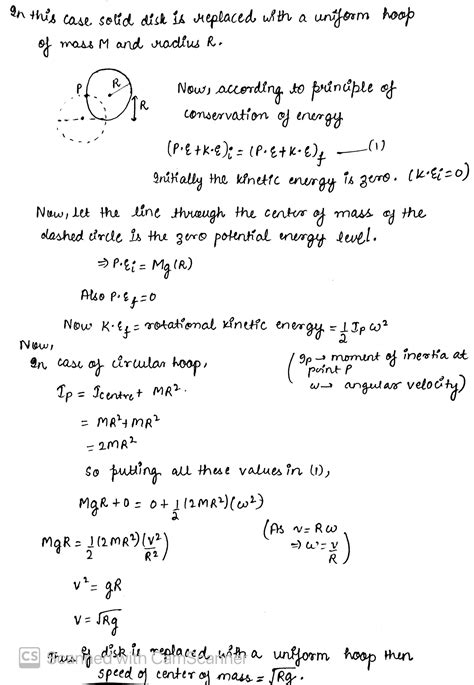 In this case solid disk is replaced with a uniform hoop
of mass M and radius R.
P R R
Now, according to principle of
conservation of energy
(P.E+K.E)i = (P.E+K.E)f —(1)
Initially the kinetic energy is zero. (K.Ei=0)
Now, let the line through the center of mass of the
dashed circle is the zero potential energy level.
⇒ P.Ei = Mg(R)
Also P.Ef=0
Now K.Ef = rotational kinetic energy = 1/2 Ip ω²
Now,
In case of circular hoop,
(Ip → moment of inertia at
point P
ω → angular velocity)
Ip = Icentre + MR².
= MR²+MR²
= 2MR²
So putting all these values in (1),
MgR + 0 = 0 + 1/2 (2MR²)(ω²)
MgR = 1/2 (2MR²)(v²/R²)
(As v=Rω
⇒ ω=v/R)
v² = gR
v = √Rg
Thus if disk is replaced with a uniform hoop then
CS Scanned with CamScanner
speed of center of mass = √Rg.